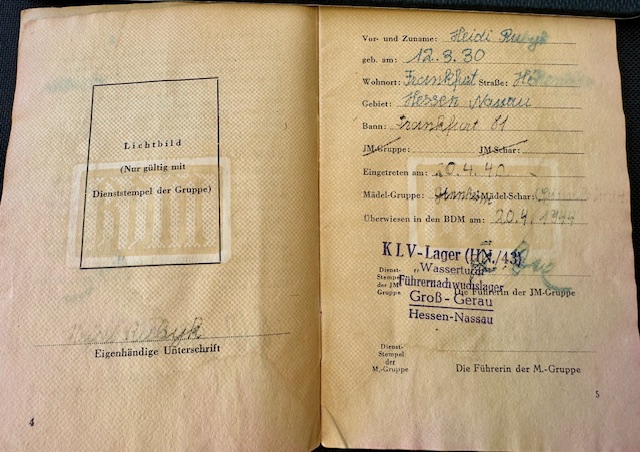 Lichtbild
(Nur gültig mit
Dienststempel der Gruppe)
Eigenhändige Unterschrift
4
Vor- und Zuname: Heidi
geb. am: 12.3.30
Wohnort: Frankfurt Straße:
Gebiet: Hessen Nassau
Bann: Frankfurt 81
JM-Gruppe: JM-Schar:
Eingetreten am: 20.4.40
Mädel-Gruppe: Mädel-Schar:
Überwiesen in den BDM am: 20.4.1944
KLV-Lager (HN./43)
Wasserturm
Führernachwuchslager
Groß-Gerau
Hessen-Nassau
Dienst-
Stempel
der JM-
Gruppe
Die Führerin der JM-Gruppe
Dienst-
Stempel
der
M.-Gruppe
Die Führerin der M.-Gruppe
5